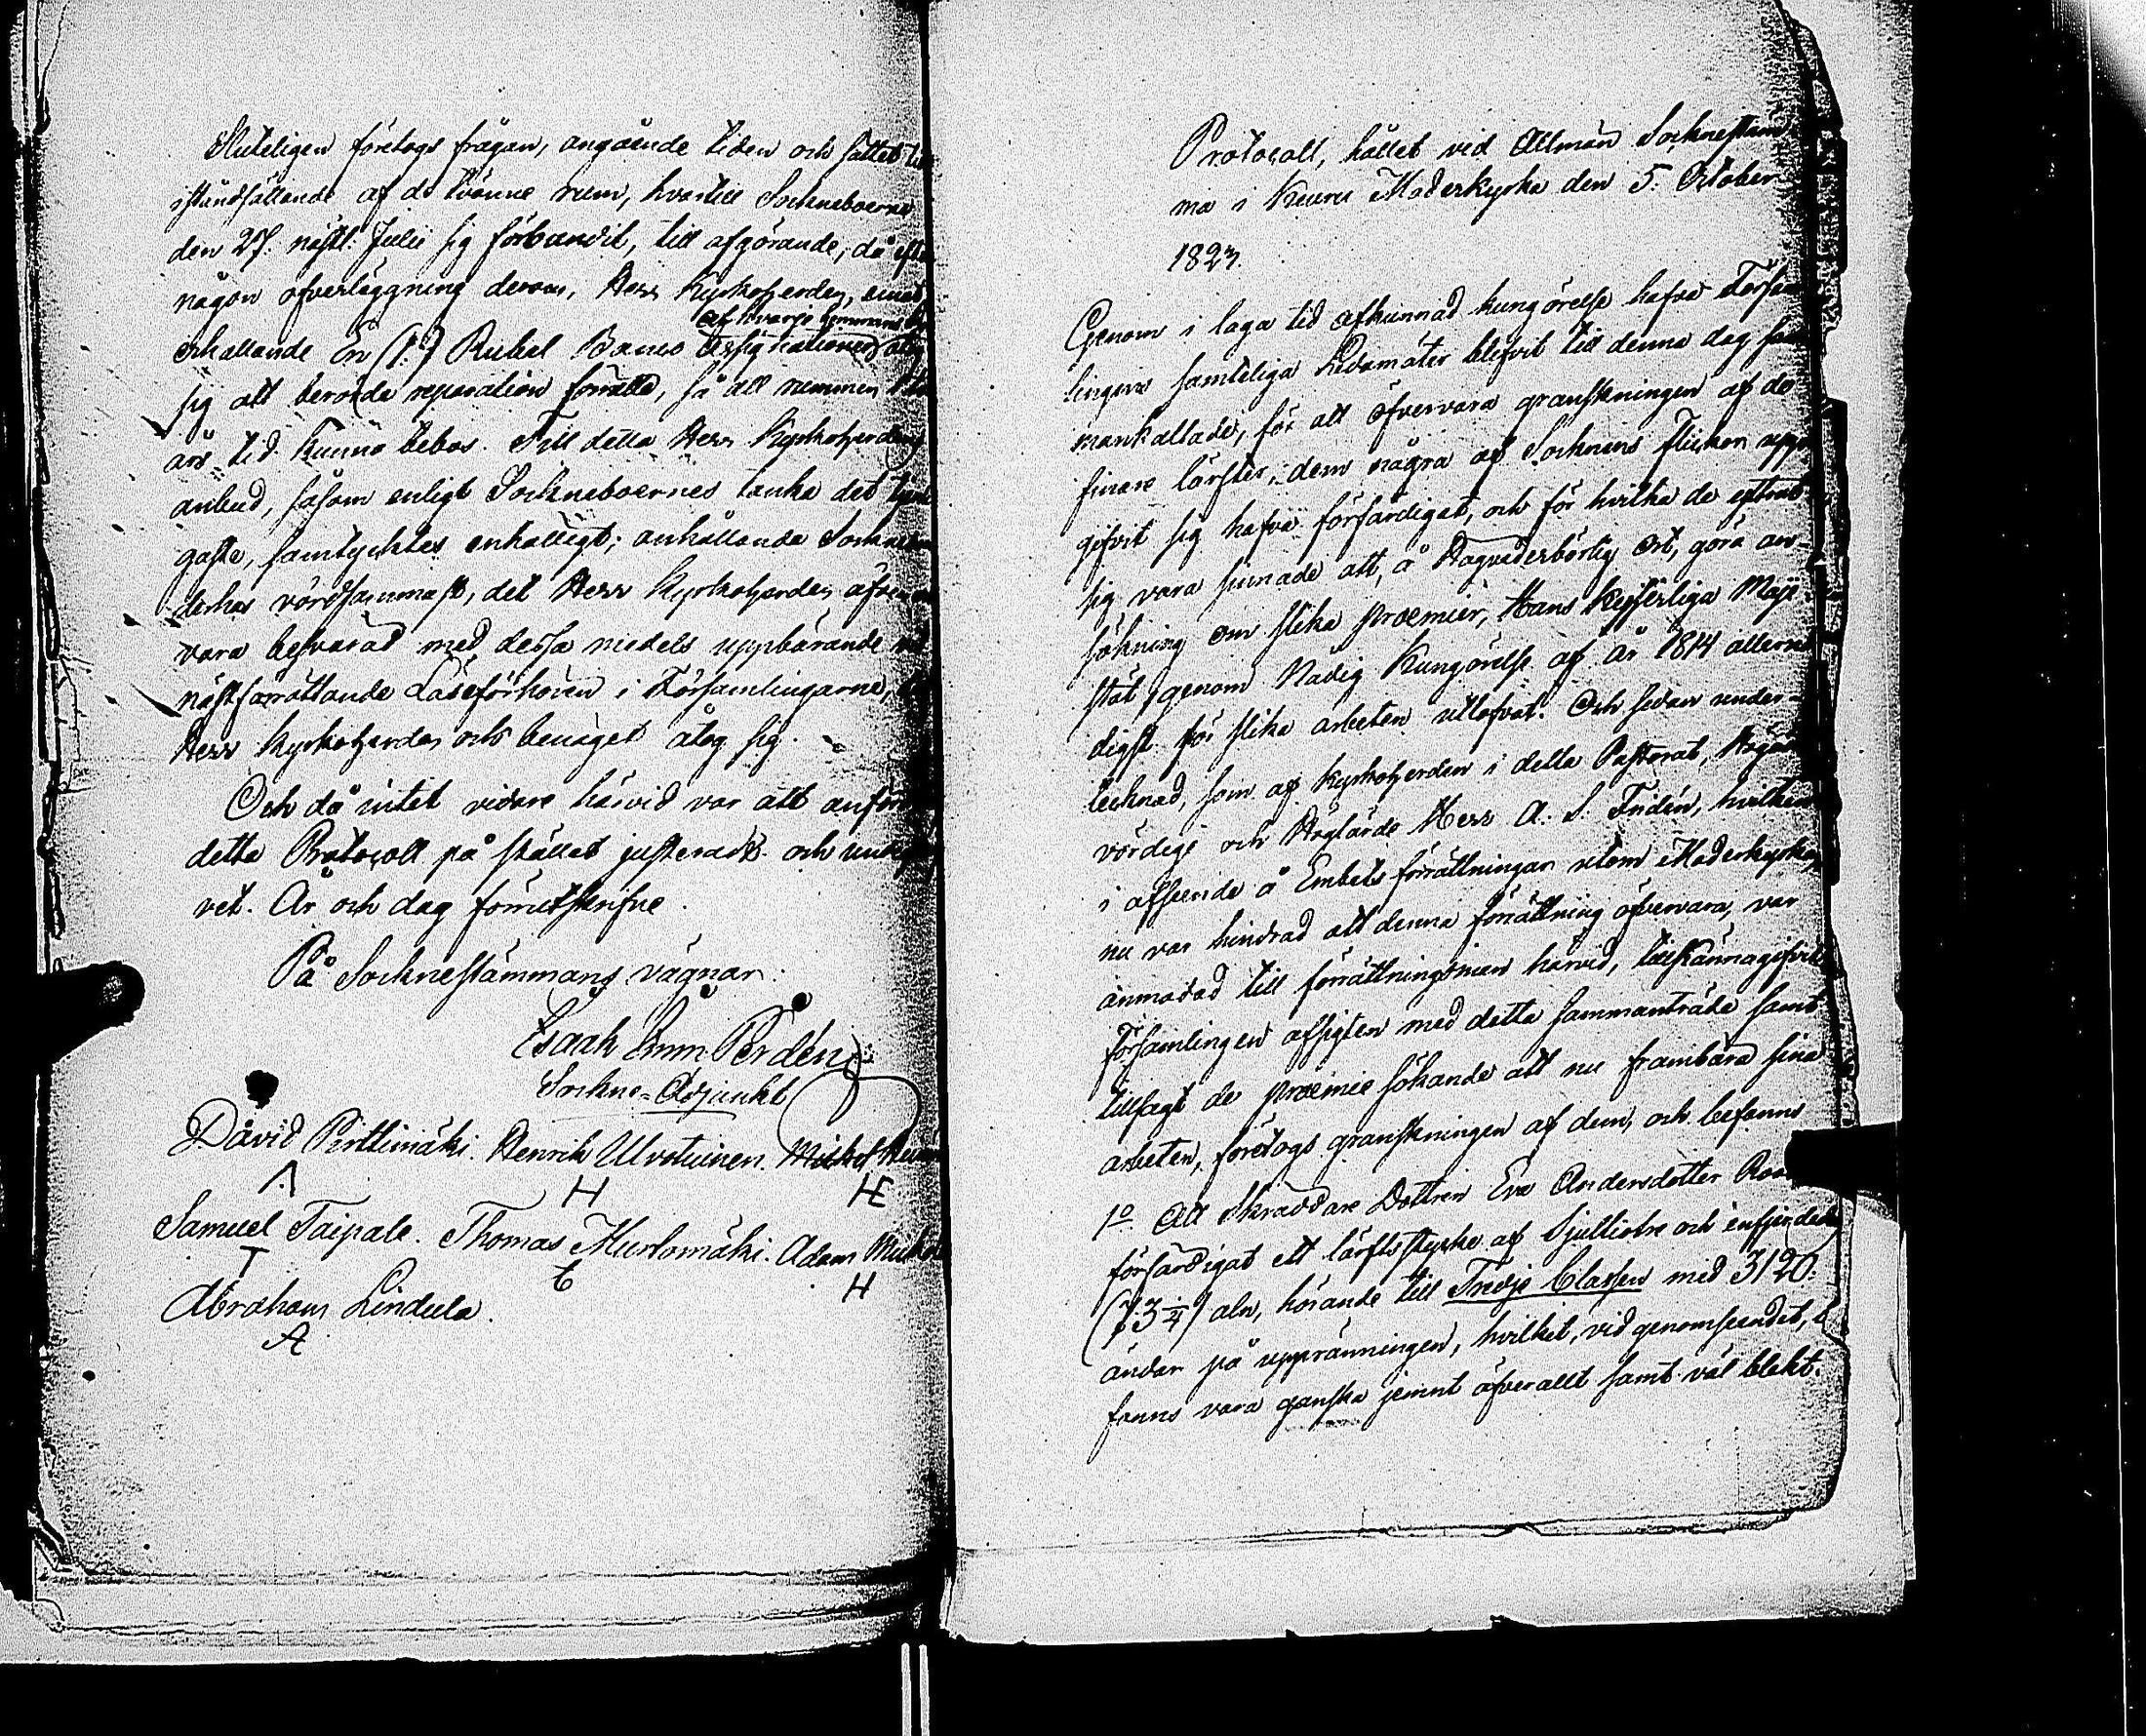 Sluteligen företogs frågan, angående tiden och sättet
iståndsällande af de tvänne rum, hvartill Sockneboerne
den 27. nästl: Julii sig förbundit, till afgörande; då efter
någon öfverläggning derom, Herr Kyrkoherden, emot
af hvarge hemman
erhållande En (1:) Rubel Banco Assignationer åtog
sig att berörde reparation förrätta, så att rummen
års tid kunna bebos. Till detta Herr Kyrkoherdens
anbud, såsom enligt Sockneboernes tanka det
gaste, samtycktes enhälligt; anhållande Socknemän
derhos vördsammast, det Herr Kyrkoherden äfven
vara besvärad med dessa medels uppbärande vid
nästförrättande Läseförhören i Församlingarne,
Herr Kyrkoherden ock benäget åtog sig.
Och då intet vidare härvid var att anföra
detta Protocoll på stället justerades och
vet. År och dag förutskrifne.
På Socknestämmans vägnar:
Isaak Emm Perdén
Sockne-Adjunkt
David Pirttimäki. Henrik Ulvotuinen. Michel
Λ H HE
Samuel Taipale. Thomas Murtomäki. Adam
T t H
Abraham Lindula.
A
Protocoll, hållet vid Allmän Socknestäm
ma i Keuru Moderkyrka den 5. October
1823.
Genom i laga tid afkunnad kungörelse hafva Försam
lingens samteliga Ledamöter blifvit till denna dag sam
mankallade, för att öfvervara granskningen af de
finare lärfter, dem några af Socknens flickor upp
gifvit sig hafva förfärdigat, och för hvilka de yttrat
sig vara sinnade att, å Högvederbörlig ort, göra an-
sökning om slika præmier, Hans Kejserliga Maje
stät, genom Nådig Kungörelse af år 1814 allernå
digst för slika arbeten utlofvat. Och sedan under-
tecknad, som af Kyrkoherden i detta Pastorat, Högäre
vördige och Höglärde Herr A. S. Fridén, hvilken
i afseende å Embetsförrättningar utom Moderkyrkan
nu var hindrad att denna förrättning öfvervara, var
anmodad till förrättningsman härvid, tillkännagifvit
Församlingen afsigten med detta sammanträde samt
tillsagt de præmie sökande att nu frambära sina
arbeten, företogs granskningen af dem, och befanns
1o Att Skräddare Dottren Eva Andersdotter
förfärdigat ett lärftsstycke af Sjuttiotre och enfjerdedels
(73 1/4) aln, hörande till Tredje Classen med 3120.
ändar på uppränningen, hvilket, vid genomseendet, be
fanns vara ganska jemnt öfverallt samt väl blekt.